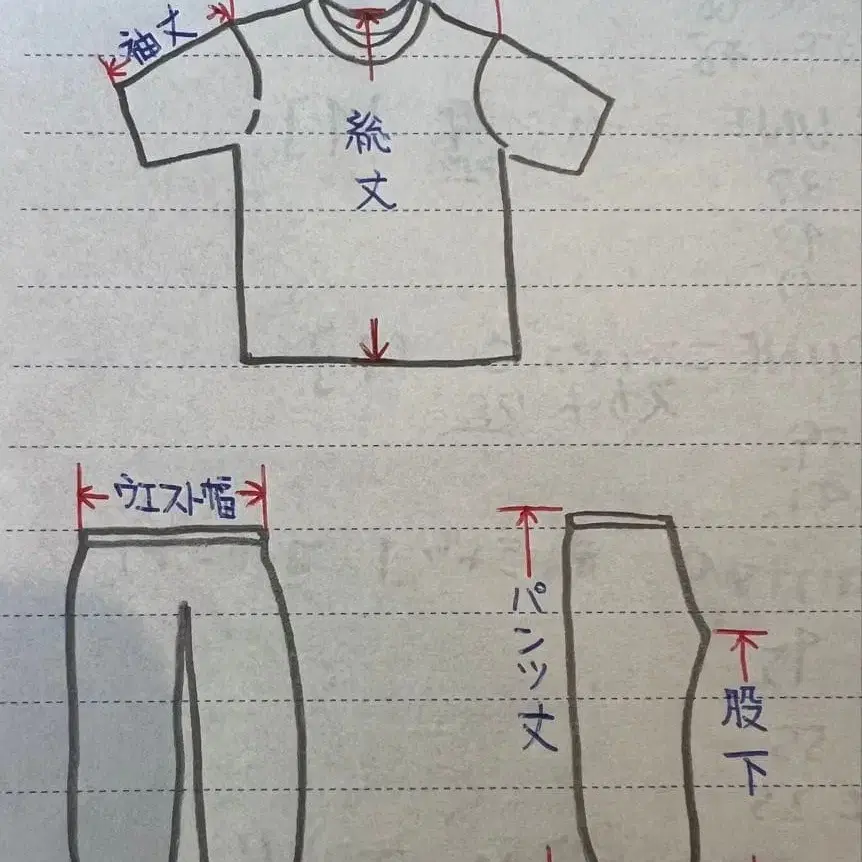 袖丈
総丈
ウエスト幅
パンツ丈
股下